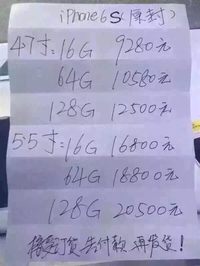 iPhone 6S(原封)
4.7寸:16G 9280元
64G 10580元
128G 12500元
5.5寸:16G 16800元
64G 18800元
128G 20500元
接受订货 先付款 再发货!